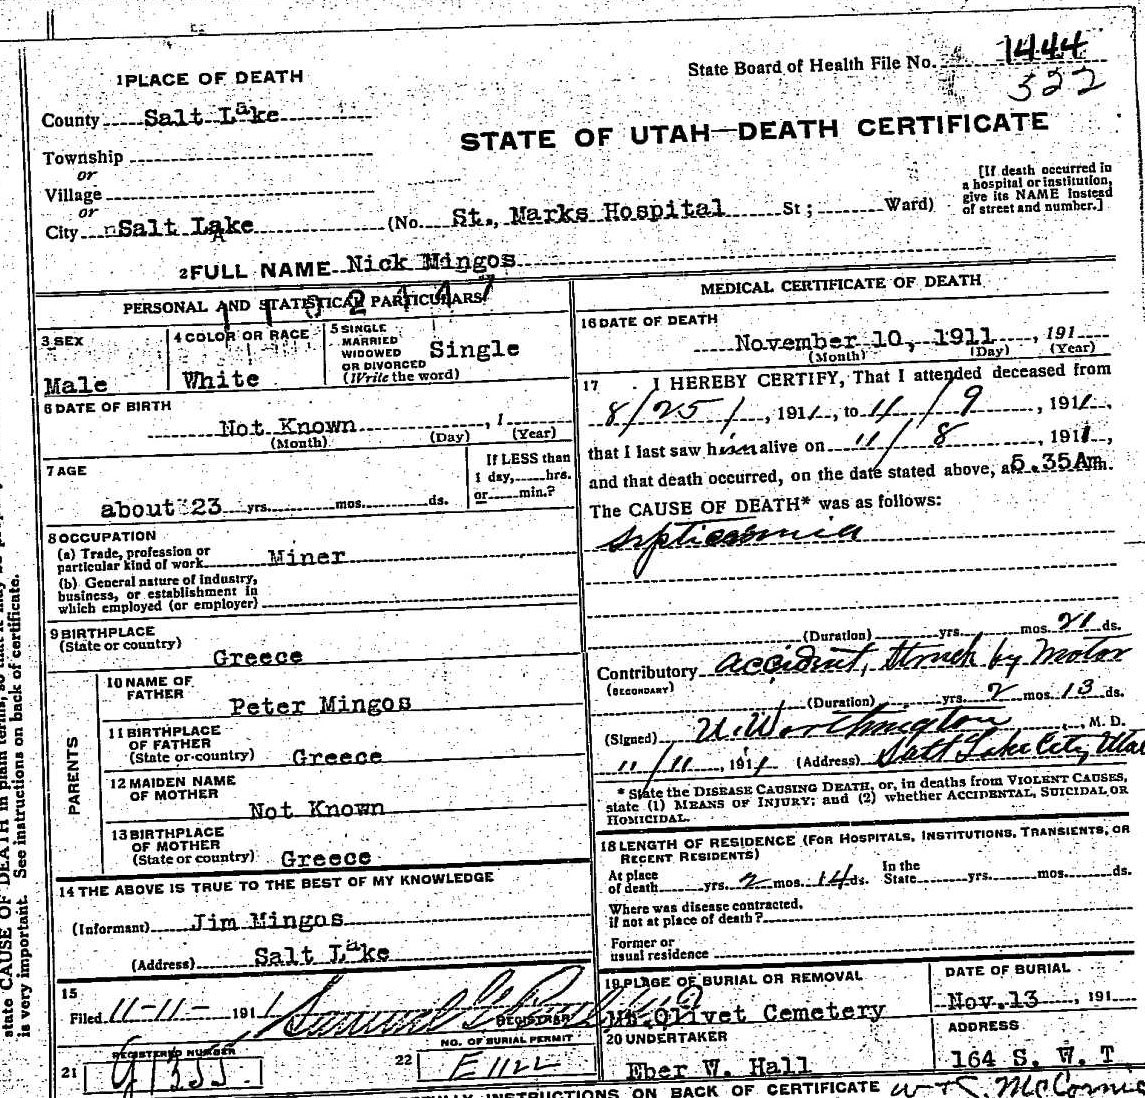 1 PLACE OF DEATH
State Board of Health File No. 1444
322
County Salt Lake
STATE OF UTAH—DEATH CERTIFICATE
Township
or
Village
or
[If death occurred in a hospital or institution, give its NAME instead of street and number.]
City Salt Lake (No. St., Marks Hospital St; Ward)
2 FULL NAME Nick Mingos
PERSONAL AND STATISTICAL PARTICULARS
3 SEX
Male
4 COLOR OR RACE
White
5 SINGLE
MARRIED
WIDOWED
OR DIVORCED
(Write the word)
Single
6 DATE OF BIRTH
Not Known , 1
(Month) (Day) (Year)
7 AGE
about 23 yrs. mos. ds.
If LESS than
1 day, hrs.
or min.?
8 OCCUPATION
(a) Trade, profession or
particular kind of work Miner
(b) General nature of industry,
business, or establishment in
which employed (or employer)
9 BIRTHPLACE
(State or country)
Greece
PARENTS
10 NAME OF
FATHER
Peter Mingos
11 BIRTHPLACE
OF FATHER
(State or country) Greece
12 MAIDEN NAME
OF MOTHER
Not Known
13 BIRTHPLACE
OF MOTHER
(State or country) Greece
14 THE ABOVE IS TRUE TO THE BEST OF MY KNOWLEDGE
(Informant) Jim Mingos
(Address) Salt Lake
15
Filed 11-11- 1911 Samuel G
REGISTRAR
REGISTERED NUMBER
21
NO. OF BURIAL PERMIT
22 E1122
MEDICAL CERTIFICATE OF DEATH
16 DATE OF DEATH
November 10, 1911 , 191
(Month) (Day) (Year)
17 I HEREBY CERTIFY, That I attended deceased from
8/25/ , 1911, to 11/9 , 1911,
that I last saw him alive on 11/8 , 1911,
and that death occurred, on the date stated above, at 5.35Am.
The CAUSE OF DEATH* was as follows:
Septicaemia
(Duration) yrs. mos. 21 ds.
Contributory Accident, Struck by Motor
(SECONDARY)
(Duration) yrs. 2 mos. 13 ds.
(Signed) U. Worthington , M. D.
11/11 , 1911 (Address) Salt Lake City, Utah
* State the DISEASE CAUSING DEATH, or, in deaths from VIOLENT CAUSES,
state (1) MEANS OF INJURY; and (2) whether ACCIDENTAL, SUICIDAL OR
HOMICIDAL.
18 LENGTH OF RESIDENCE (FOR HOSPITALS, INSTITUTIONS, TRANSIENTS, OR
RECENT RESIDENTS)
At place
of death yrs. 2 mos. 14 ds.
In the
State yrs. mos. ds.
Where was disease contracted,
if not at place of death?
Former or
usual residence
19 PLACE OF BURIAL OR REMOVAL
Mt. Olivet Cemetery
DATE OF BURIAL
Nov. 13 , 191
20 UNDERTAKER
Eber W. Hall
ADDRESS
164 S. W. T
INSTRUCTIONS ON BACK OF CERTIFICATE
state CAUSE OF DEATH in plain terms, so that it may be
is very important. See instructions on back of certificate.